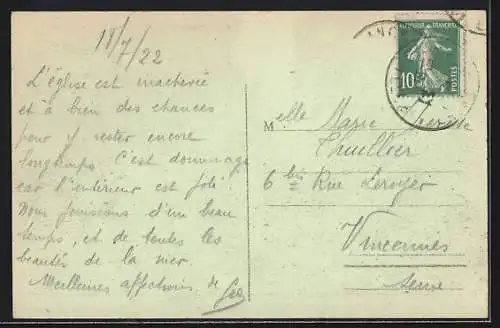 18/7/22
L'église est inachevée
et a bien des chances
pour y rester encore
longtemps. C'est dommage
car l'intérieur est joli
Nous jouissons d'un beau
temps, et de toutes les
beautés de la mer.
Meilleures affections de
RÉPUBLIQUE FRANÇAISE
10c
POSTES
Melle Marie Thérèse
Thuillier
6 bis Rue Leroyer
Vincennes
Seine